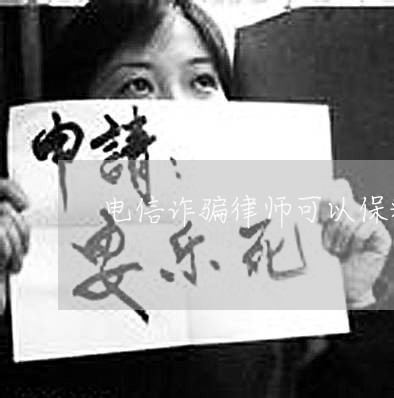 申請：
电信诈骗律师可以保
安乐死